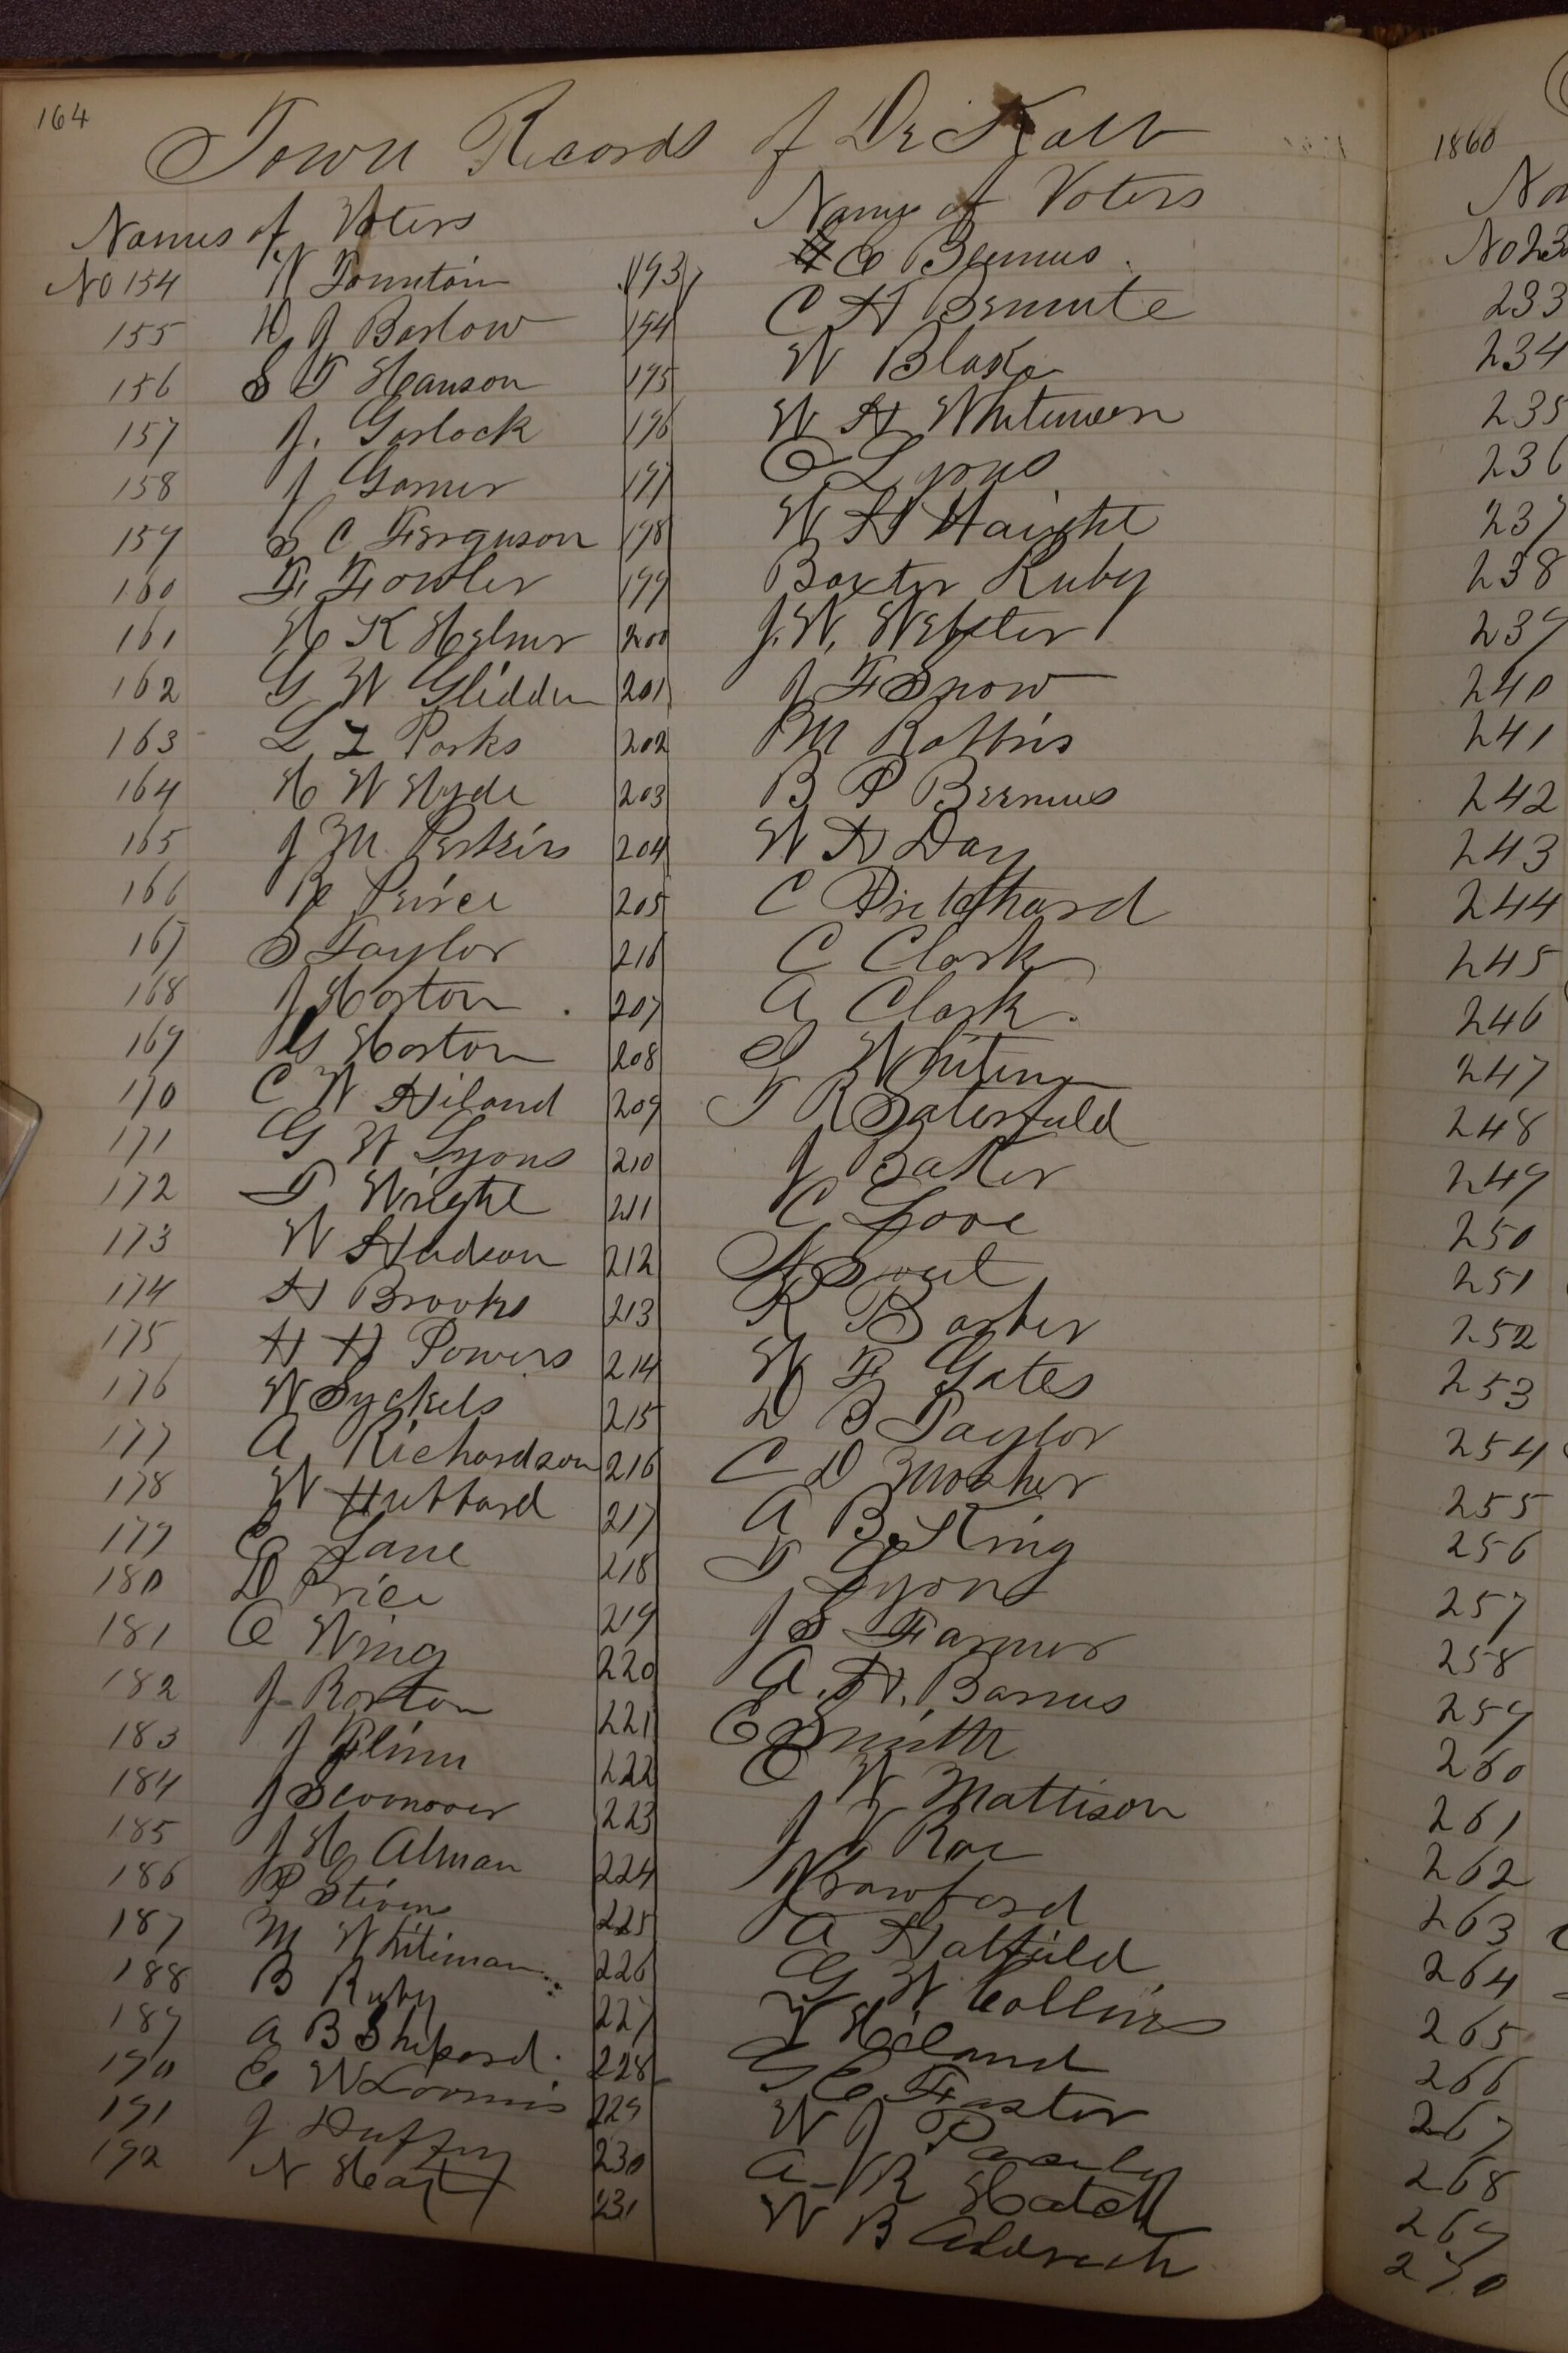 164
Town Records of De Kalb
Names of Voters
No 154 W Fountain
155 D J Barlow
156 S T Hanson
157 J. Garlock
158 J Garner
159 S C Ferguson
160 F. Fowler
161 H K Helmer
162 G W Glidden
163 L L Parks
164 H W Hyde
165 J M Perkins
166 R Peirce
167 S Taylor
168 J Horton
169 G Horton
170 C W Hiland
171 G W Lyons
172 T Wright
173 W Hudson
174 H Brooks
175 H H Powers
176 W Syckels
177 A Richardson
178 W Hubbard
179 C Lane
180 D Price
181 C Wing
182 J Rorton
183 J Flinn
184 J
185 J H Alman
186 P Stevens
187 M Whiteman
188 B Ruby
189 A B Shepard
190 C W Loomis
191 J Duffy
192 N Hart
Name of Voters
193 C Beemus
194 C H
195 W Blake
196 W H Whitmore
197 C Lyons
198 W H Haight
199 Baxter Ruby
200 J. W. Webster
201 J F Snow
202 M Robbins
203 B P Beemus
204 W H Day
205 C Pritchard
216 C Clark
207 A Clark
208 S Whiting
209 T R Saterfield
210 J Baker
211 C Love
212 N Sweet
213 R Barber
214 W F Gates
215 D B Taylor
216 C D Mosher
217 A B King
218 T Lyons
219 J S Farmer
220 A. H. Barnus
221 C Smith
222 C W Mattison
223 J Rae
224 Crawford
225 A Hatfield
226 G W Collins
227 Hiland
228 G C Foster
229 W J
230 A R Hatch
231 W B Aldrich
1860
No 23
233
234
235
236
237
238
239
240
241
242
243
244
245
246
247
248
249
250
251
252
253
254
255
256
257
258
259
260
261
262
263
264
265
266
267
268
269
270